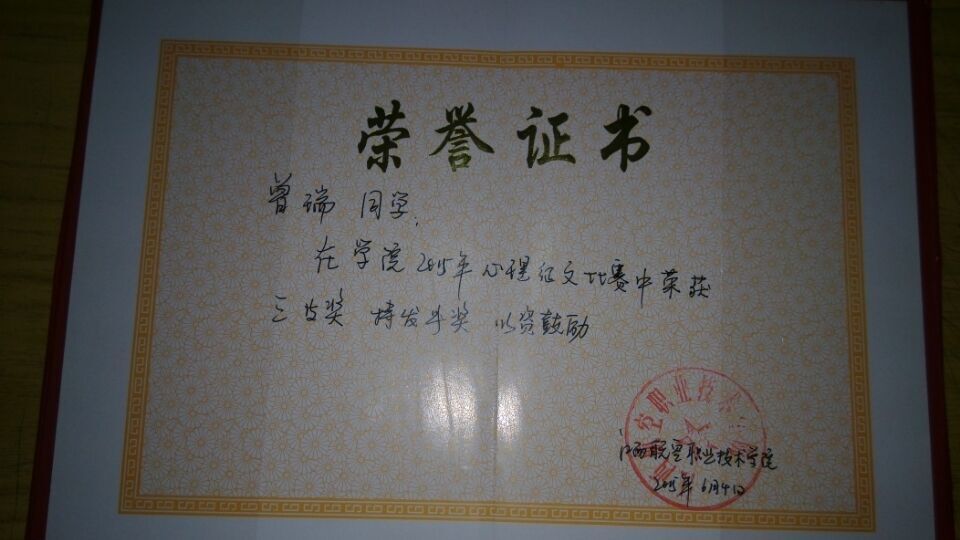 荣誉证书
曾瑞 同学:
在学院2015年心理征文比赛中荣获
三等奖 特发此奖 以资鼓励
职业技术
江西航空职业技术学院
2015年6月4日